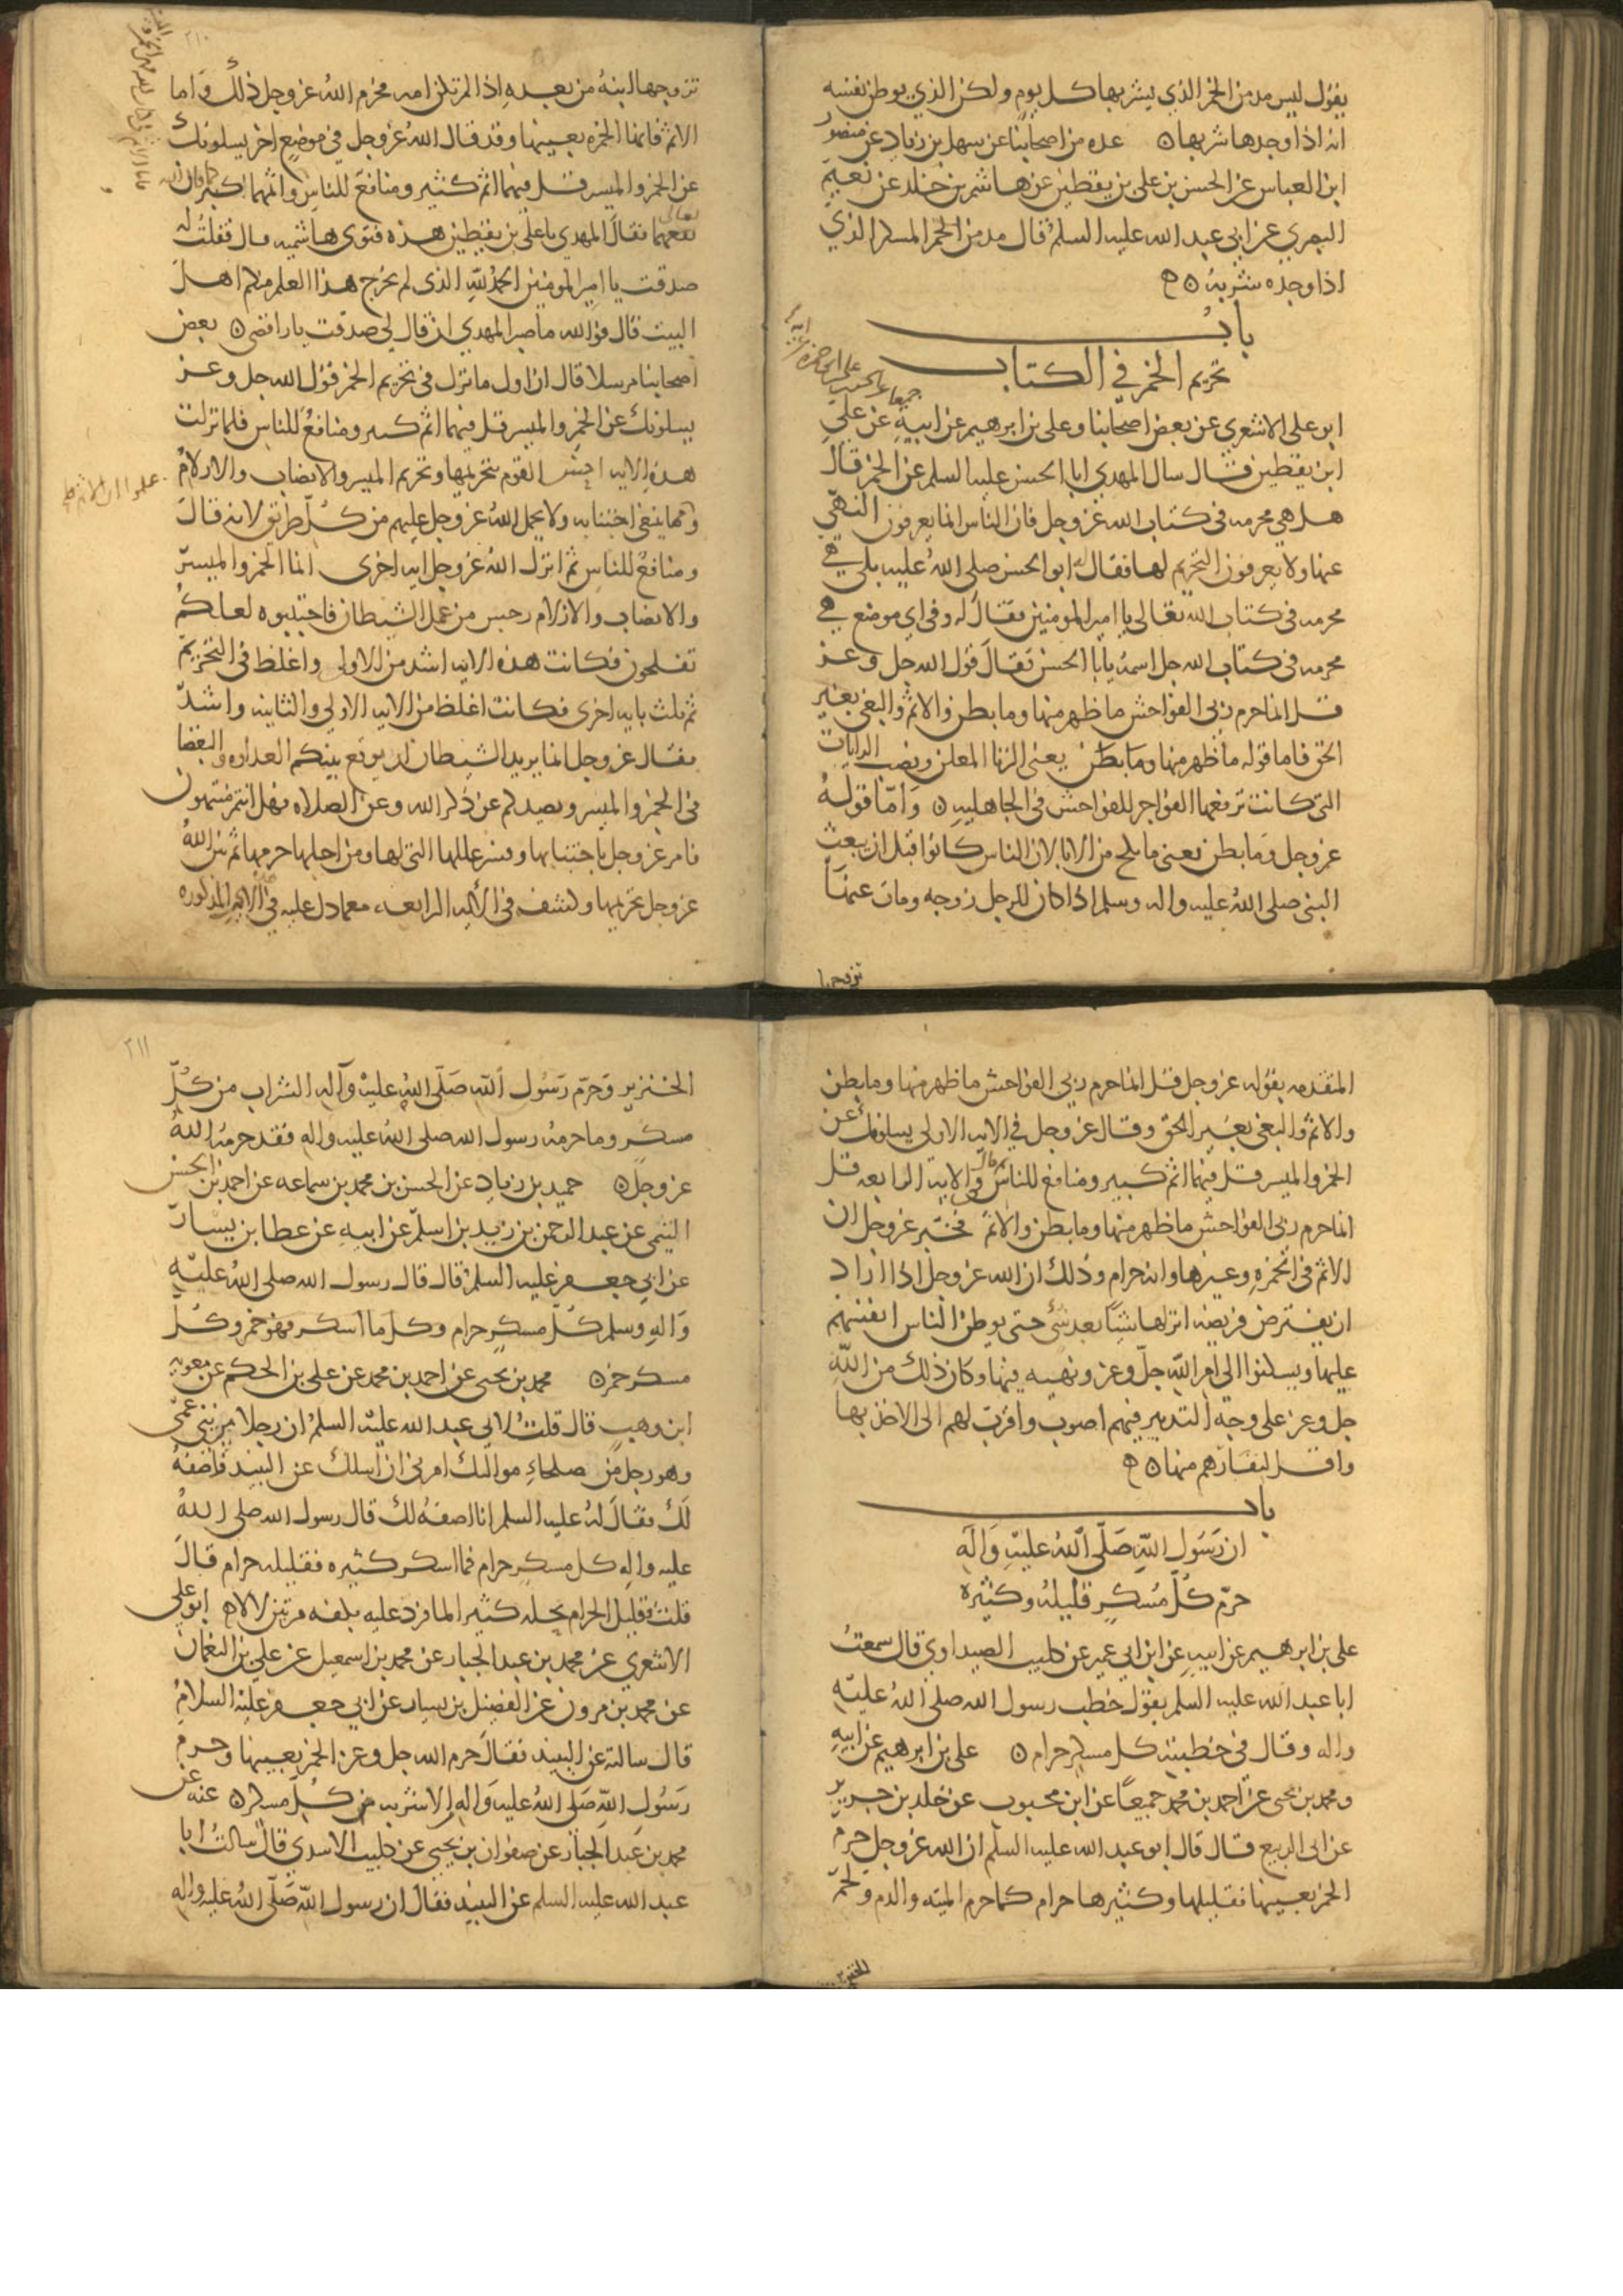 يقول ليس مدمن الخمر الذي يشربها كل يوم ولكن الذي يوطن نفسه
انه اذا وجدها شربها ن عده من اصحابنا عن سهل بن زياد عن منصور
ابن العباس عن الحسن بن علي بن يقطين عن هاشم بن خلد عن نعيم
البصري عن ابي عبد الله عليه السلم قال مدمن الخمر المسكر الذي
اذا وجده شربه ن ه
باب
تحريم الخمر في الكتاب
ابو علي الاشعري عن بعض اصحابنا وعلي بن ابرهيم عن ابيه عن علي
ابن يقطين قال سال المهدي ابا الحسن عليه السلم عن الخمر قال
هل هي محرمه في كتاب الله عز وجل فان الناس انما يعرفون النهي
عنها ولا يعرفون التحريم لها فقال له ابو الحسن صلى الله عليه بلى هي
محرمه في كتاب الله تعالى يا امير المومنين فقال له وفي اي موضع هي
محرمه في كتاب الله جل اسمه يابا الحسن فقال قول الله جل وعز
قل انما حرم ربي الفواحش ما ظهر منها وما بطن والاثم والبغي بغير
الحق فاما قوله ما ظهر منها وما بطن يعني الزنا المعلن ونصب الرايات
التي كانت ترفعها الفواجر للفواحش في الجاهليه ن وامّا قوله
عز وجل وما بطن يعني ما نكح من الابا لان الناس كانوا قبل ان يبعث
النبي صلى الله عليه واله وسلم اذا كان للرجل زوجه ومات عنها
تزوجها
٢١٠
تزوجها ابنه من بعده اذا لم تكن امه فحرم الله عز وجل ذلك واما
الاثم فانها الخمره بعينها وقد قال الله عز وجل في موضع اخر يسلونك
عن الخمر والميسر قل فيهما اثم كثير ومنافع للناس واثمهما اكبر
نفعهما فقال المهدي يا علي بن يقطين هذه فتوى هاشميه قال فقلت له
صدقت يا امير المومنين الحمد لله الذي لم يخرج هذا العلم منكم اهل
البيت قال فوالله ما صبر المهدي ان قال لي صدقت يا رافضي ن بعض
اصحابنا مرسلا قال ان اول ما نزل في تحريم الخمر قول الله جل وعز
يسلونك عن الخمر والميسر قل فيهما اثم كبير ومنافع للناس فلما نزلت
هذه الايه احس القوم بتحريمها وتحريم الميسر والانصاب والازلام
علموا ان الاثم
ومما ينبغي اجتنابه ولا يحمل الله عز وجل عليهم من كلّ طريق لانه قال
ومنافع للناس ثم انزل الله عز وجل ايه اخرى انما الخمر والميسر
والانصاب والازلام رجس من عمل الشيطان فاجتنبوه لعلكم
تفلحون فكانت هذه الايه اشد من الاولى واغلظ في التحريم
ثم ثلث بايه اخرى فكانت اغلظ من الايه الاولى والثانيه واشدّ
فقال عز وجل انما يريد الشيطان ان يوقع بينكم العداوه والبغضا
في الخمر والميسر ويصدكم عن ذكر الله وعن الصلاه فهل انتم منتهون
فامر عز وجل باجتنابها وفسر عللها التي لها ومن اجلها حرمها ثم بين الله
عز وجل تحريمها وكشفه في الايه الرابعه مع ما دل عليه في المذكوره
المتقدمه بقوله عز وجل قل انما حرم ربي الفواحش ما ظهر منها وما بطن
والاثم والبغي بغير الحق وقال عز وجل في الايه الاولى يسلونك عن
الخمر والميسر قل فيهما اثم كبير ومنافع للناس ثم قال في الاية الرابعه قل
انما حرم ربي الفواحش ما ظهر منها وما بطن والاثم فخبّر عز وجل ان
الاثم في الخمره وغيرها وانه حرام وذلك ان الله عز وجل اذا اراد
ان يفترض فريضه انزلها شيئا بعد شئ حتى يوطن الناس انفسهم
عليها ويسكنوا الى امر الله جلّ وعز ونهيه فيها وكان ذلك من الله
جل وعز على وجه التدبير فيهم اصوب واقرب لهم الى الاخذ بها
واقل لنفارهم منها ن ه
باب
ان رَسُول اللهِ صَلّى اللهُ عليْهِ وَالَهِ
حرّم كُلّ مُسْكرٍ قليلهُ وكثيرهُ
علي بن ابرهيم عن ابيهِ عن ابن ابي عمير عن كليب الصيداوي قال سمعتُ
ابا عبد الله عليه السلم يقول خطب رسول الله صلى الله عليه
واله وقال في خطبته كل مسكر حرام ن علي بن ابرهيم عن ابيهِ
ومحمد بن يحيى عن احمد بن محمد جميعًا عن ابن محبوب عن خلد بن جرير
عن ابي الربيع قال قال ابو عبد الله عليه السلم ان الله عز وجل حرم
الخمر بعينها فقليلها وكثيرها حرام كما حرم الميته والدم ولحم
الخنزير
٢١١
الخنزير وحرّم رَسُول الله صَلّى اللهُ عليهْ وَآله الشراب من كُلّ
مسكر وما حرمهُ رسول الله صلى الله عليه واله فقد حرمه اللهُ
عز وجل ن حميد بن زياد عن الحسن بن محمد بن سماعه عن احمد بن الحسن
الميثمي عن عبد الرحمن بن زيد بن اسلم عن ابيه عن عطا بن يسار
عن ابي جعفر عليه السلم قال قال رسول الله صلى الله عليه
وَاله وسلم كُلّ مسكرٍ حرام وكل ما اسكر فهو خمر وكُلّ
مسكر خمر ن محمد بن يحيى عن احمد بن محمد عن علي بن الحكم عن معويه
ابن وهب قال قلتُ لابي عبد الله عليه السلم ان رجلا من بني عمّي
وهو رجل من صلحاءِ مواليك امرني ان اسلك عن النبيذ فاصفهُ
لك فقال لهُ عليه السلم انا اصفهُ لك قال رسول الله صلى اللهُ
عليه واله كل مسكر حرام فما اسكر كثيره فقليله حرام قال
قلت فقليل الحرام يحله كثير الما فرد عليه بكفه مرتين لا لا ه ابو علي
الاشعري عن محمد بن عبد الجبار عن محمد بن اسمعيل عن علي بن النعمان
عن محمد بن مرون عن الفضيل بن يسار عن ابي جعفر عليه السلامُ
قال سالته عن النبيذ فقال حرم الله جل وعز الخمر بعينها وحرم
رَسُول اللهِ صَلى اللهُ عليه وَالهِ الاشربه من كُلّ مسكر ن عنه عن
محمد بن عبد الجبار عن صفوان بن يحيى عن كليب الاسدي قال سالت ابا
عبد الله عليه السلم عن النبيذ فقال ان رسول اللهِ صَلّى اللهُ عليه واله